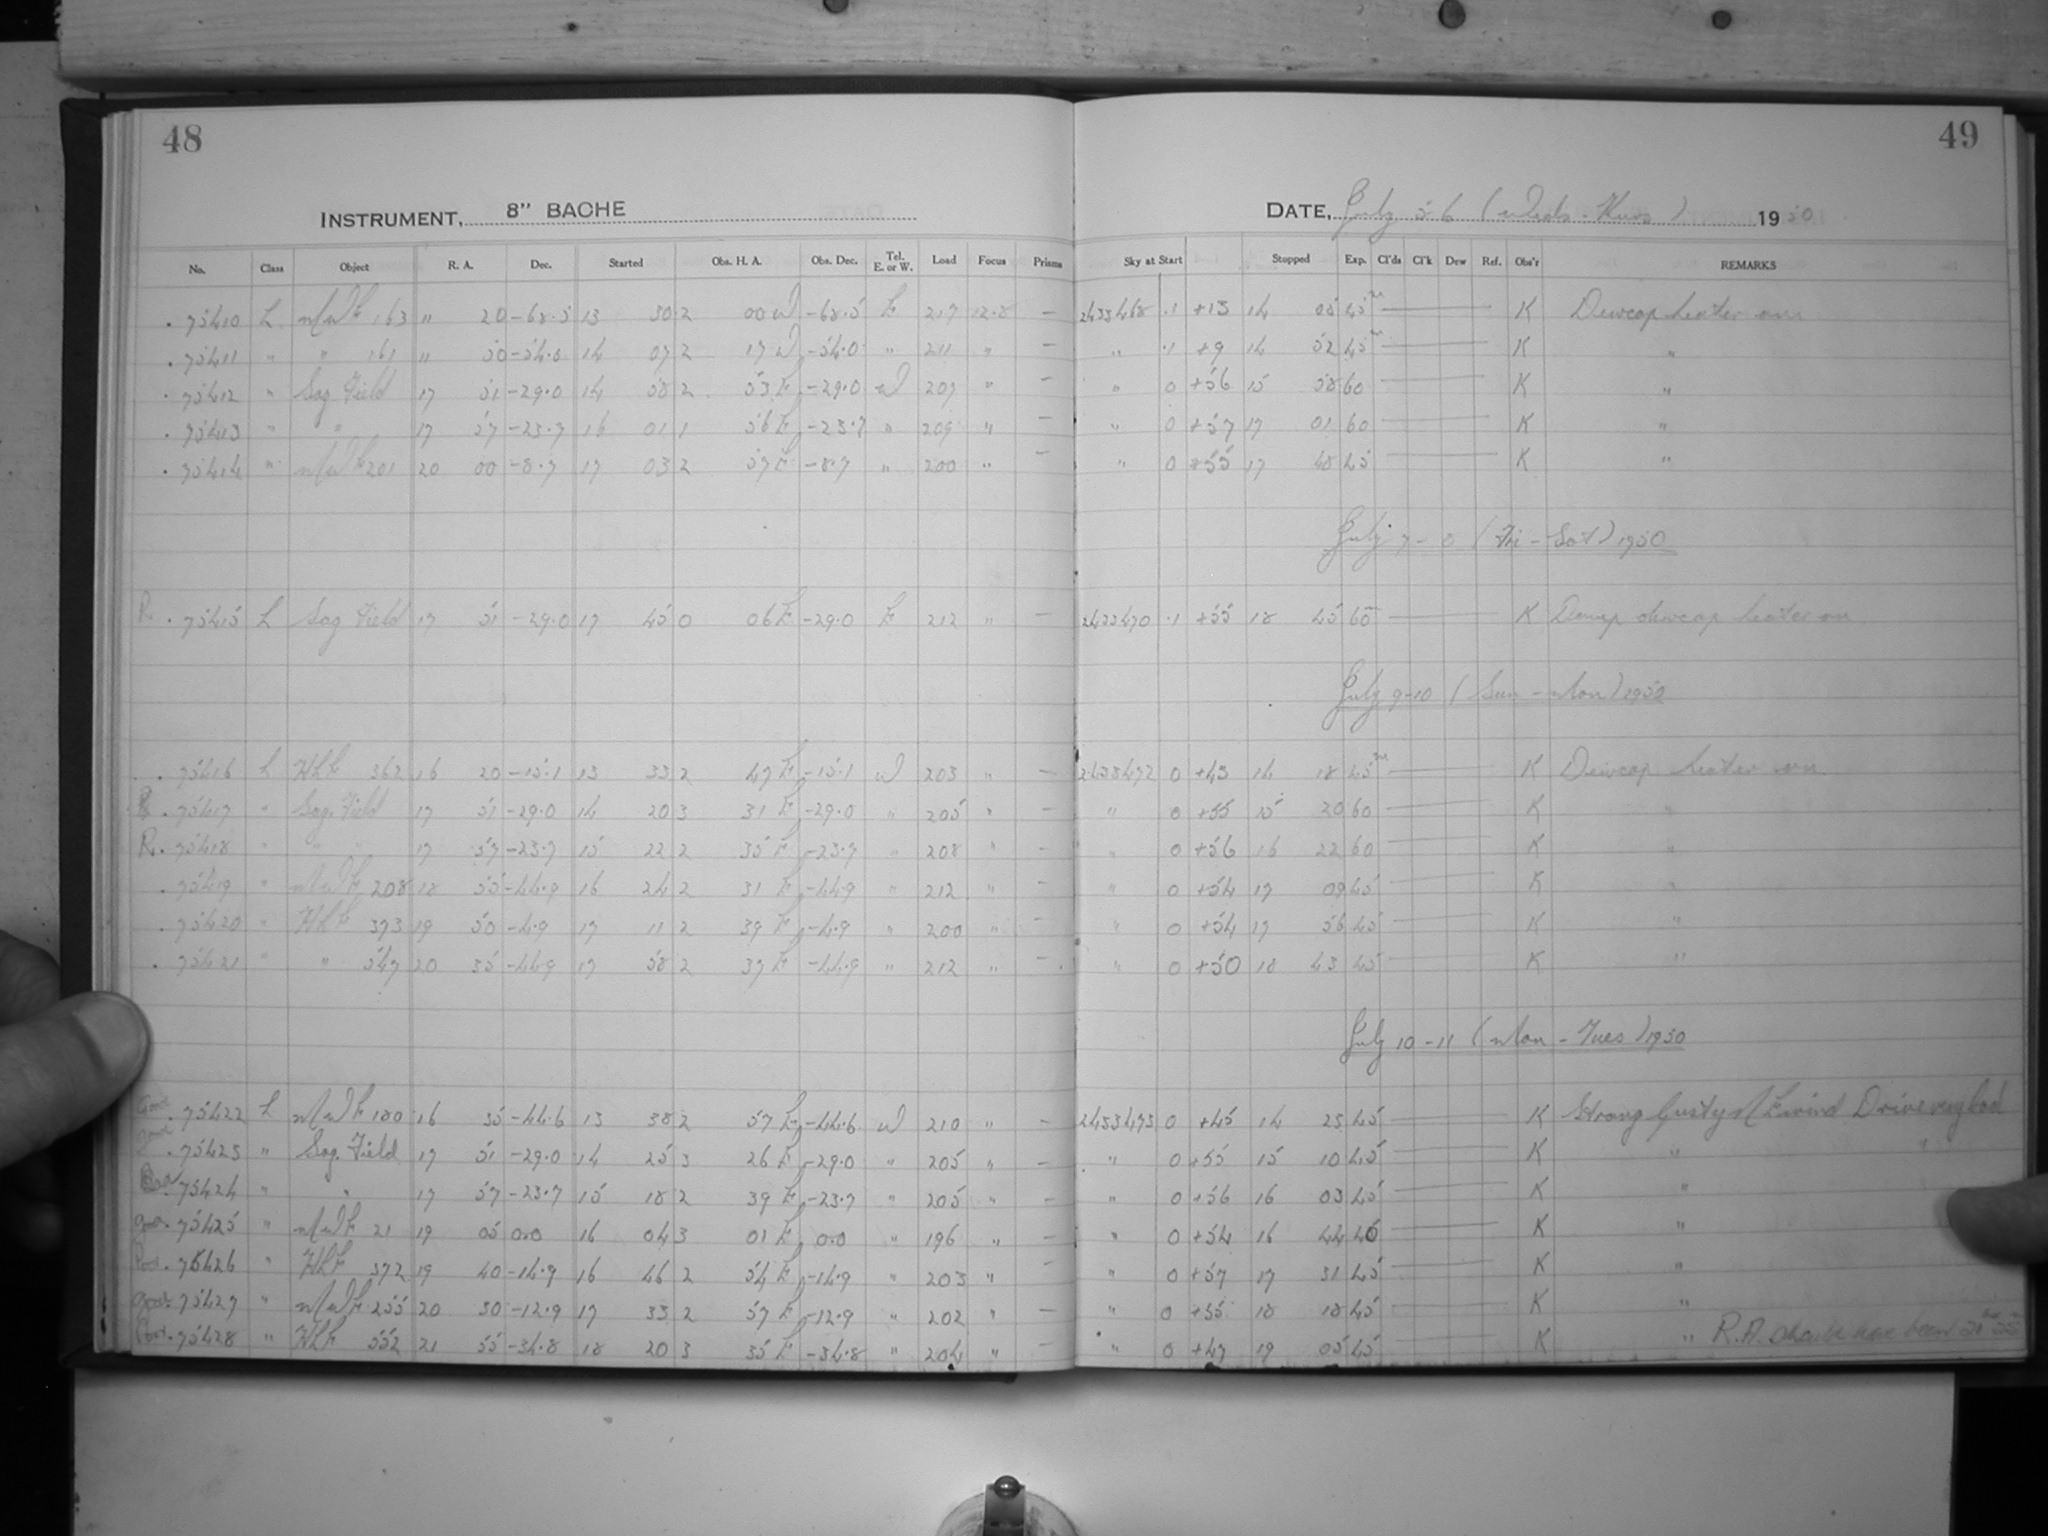 48
49
INSTRUMENT, 8" BACHE
DATE, July 5-6 (Weds - Thurs) 1950
No. Class Object R. A. Dec. Started Obs. H. A. Obs. Dec. Tel. E. or W. Load Focus Prisms Sky at Start Stopped Exp. Cl'ds Cl'k Dew Ref. Obs'r REMARKS
. 75410 L MWF 163 " 20 -68.5 13 30 2 00 W -68.5 E 217 12.8 — 2433468 .1 +13 14 05 45 K Dewcap heater on
. 75411 " " 161 " 50 -54.0 14 07 2 17 W -54.0 " 211 " — " .1 +9 14 52 45 K "
. 75412 " Sag Field 17 51 -29.0 14 58 2 53 E -29.0 W 207 " — " 0 +56 15 58 60 K "
. 75413 " " 17 57 -23.7 16 01 1 56 E -23.7 " 209 " — " 0 +57 17 01 60 K "
. 75414 " MWF 201 20 00 -8.7 17 03 2 57 E -8.7 " 200 " — " 0 +55 17 48 45 K "
July 7-8 (Fri - Sat) 1950
R . 75415 L Sag Field 17 51 -29.0 17 45 0 06 E -29.0 E 212 " — 2433470 .1 +55 18 45 60 K Damp dewcap heater on
July 9-10 (Sun - Mon) 1950
. 75416 L HLF 362 16 20 -15.1 13 33 2 47 E -15.1 W 203 " — 2433472 0 +43 14 18 45 K Dewcap heater on
R . 75417 " Sag. Field 17 51 -29.0 14 20 3 31 E -29.0 " 205 " — " 0 +55 15 20 60 K "
R . 75418 " " " 17 57 -23.7 15 22 2 35 E -23.7 " 208 " — " 0 +56 16 22 60 K "
. 75419 " MWF 208 18 55 -44.9 16 24 2 31 E -44.9 " 212 " — " 0 +54 17 09 45 K "
. 75420 " HLF 373 19 50 -4.9 17 11 2 39 E -4.9 " 200 " — " 0 +54 17 56 45 K "
. 75421 " " 547 20 35 -44.9 17 58 2 37 E -44.9 " 212 " — " 0 +50 18 43 45 K "
July 10-11 (Mon - Tues) 1950
Good . 75422 L MWF 180 16 35 -44.6 13 38 2 57 E -44.6 W 210 " — 2433473 0 +45 14 23 45 K Strong Gusty N E wind Drive very bad
Good . 75423 " Sag. Field 17 51 -29.0 14 25 3 26 E -29.0 " 205 " — " 0 +55 15 10 45 K " "
75424 " " 17 57 -23.7 15 18 2 39 E -23.7 " 205 " — " 0 +56 16 03 45 K "
Good . 75425 " MWF 21 19 05 0.0 16 04 3 01 E 0.0 " 196 " — " 0 +54 16 44 40 K "
Poor . 75426 " HLF 372 19 40 -14.9 16 46 2 54 E -14.9 " 203 " — " 0 +57 17 31 45 K "
Good . 75427 " MWF 255 20 30 -12.9 17 33 2 57 E -12.9 " 202 " — " 0 +55 18 18 45 K "
Poor . 75428 " HLF 552 21 55 -34.8 18 20 3 35 E -34.8 " 204 " — " 0 +47 19 05 45 K " R.A. should have been